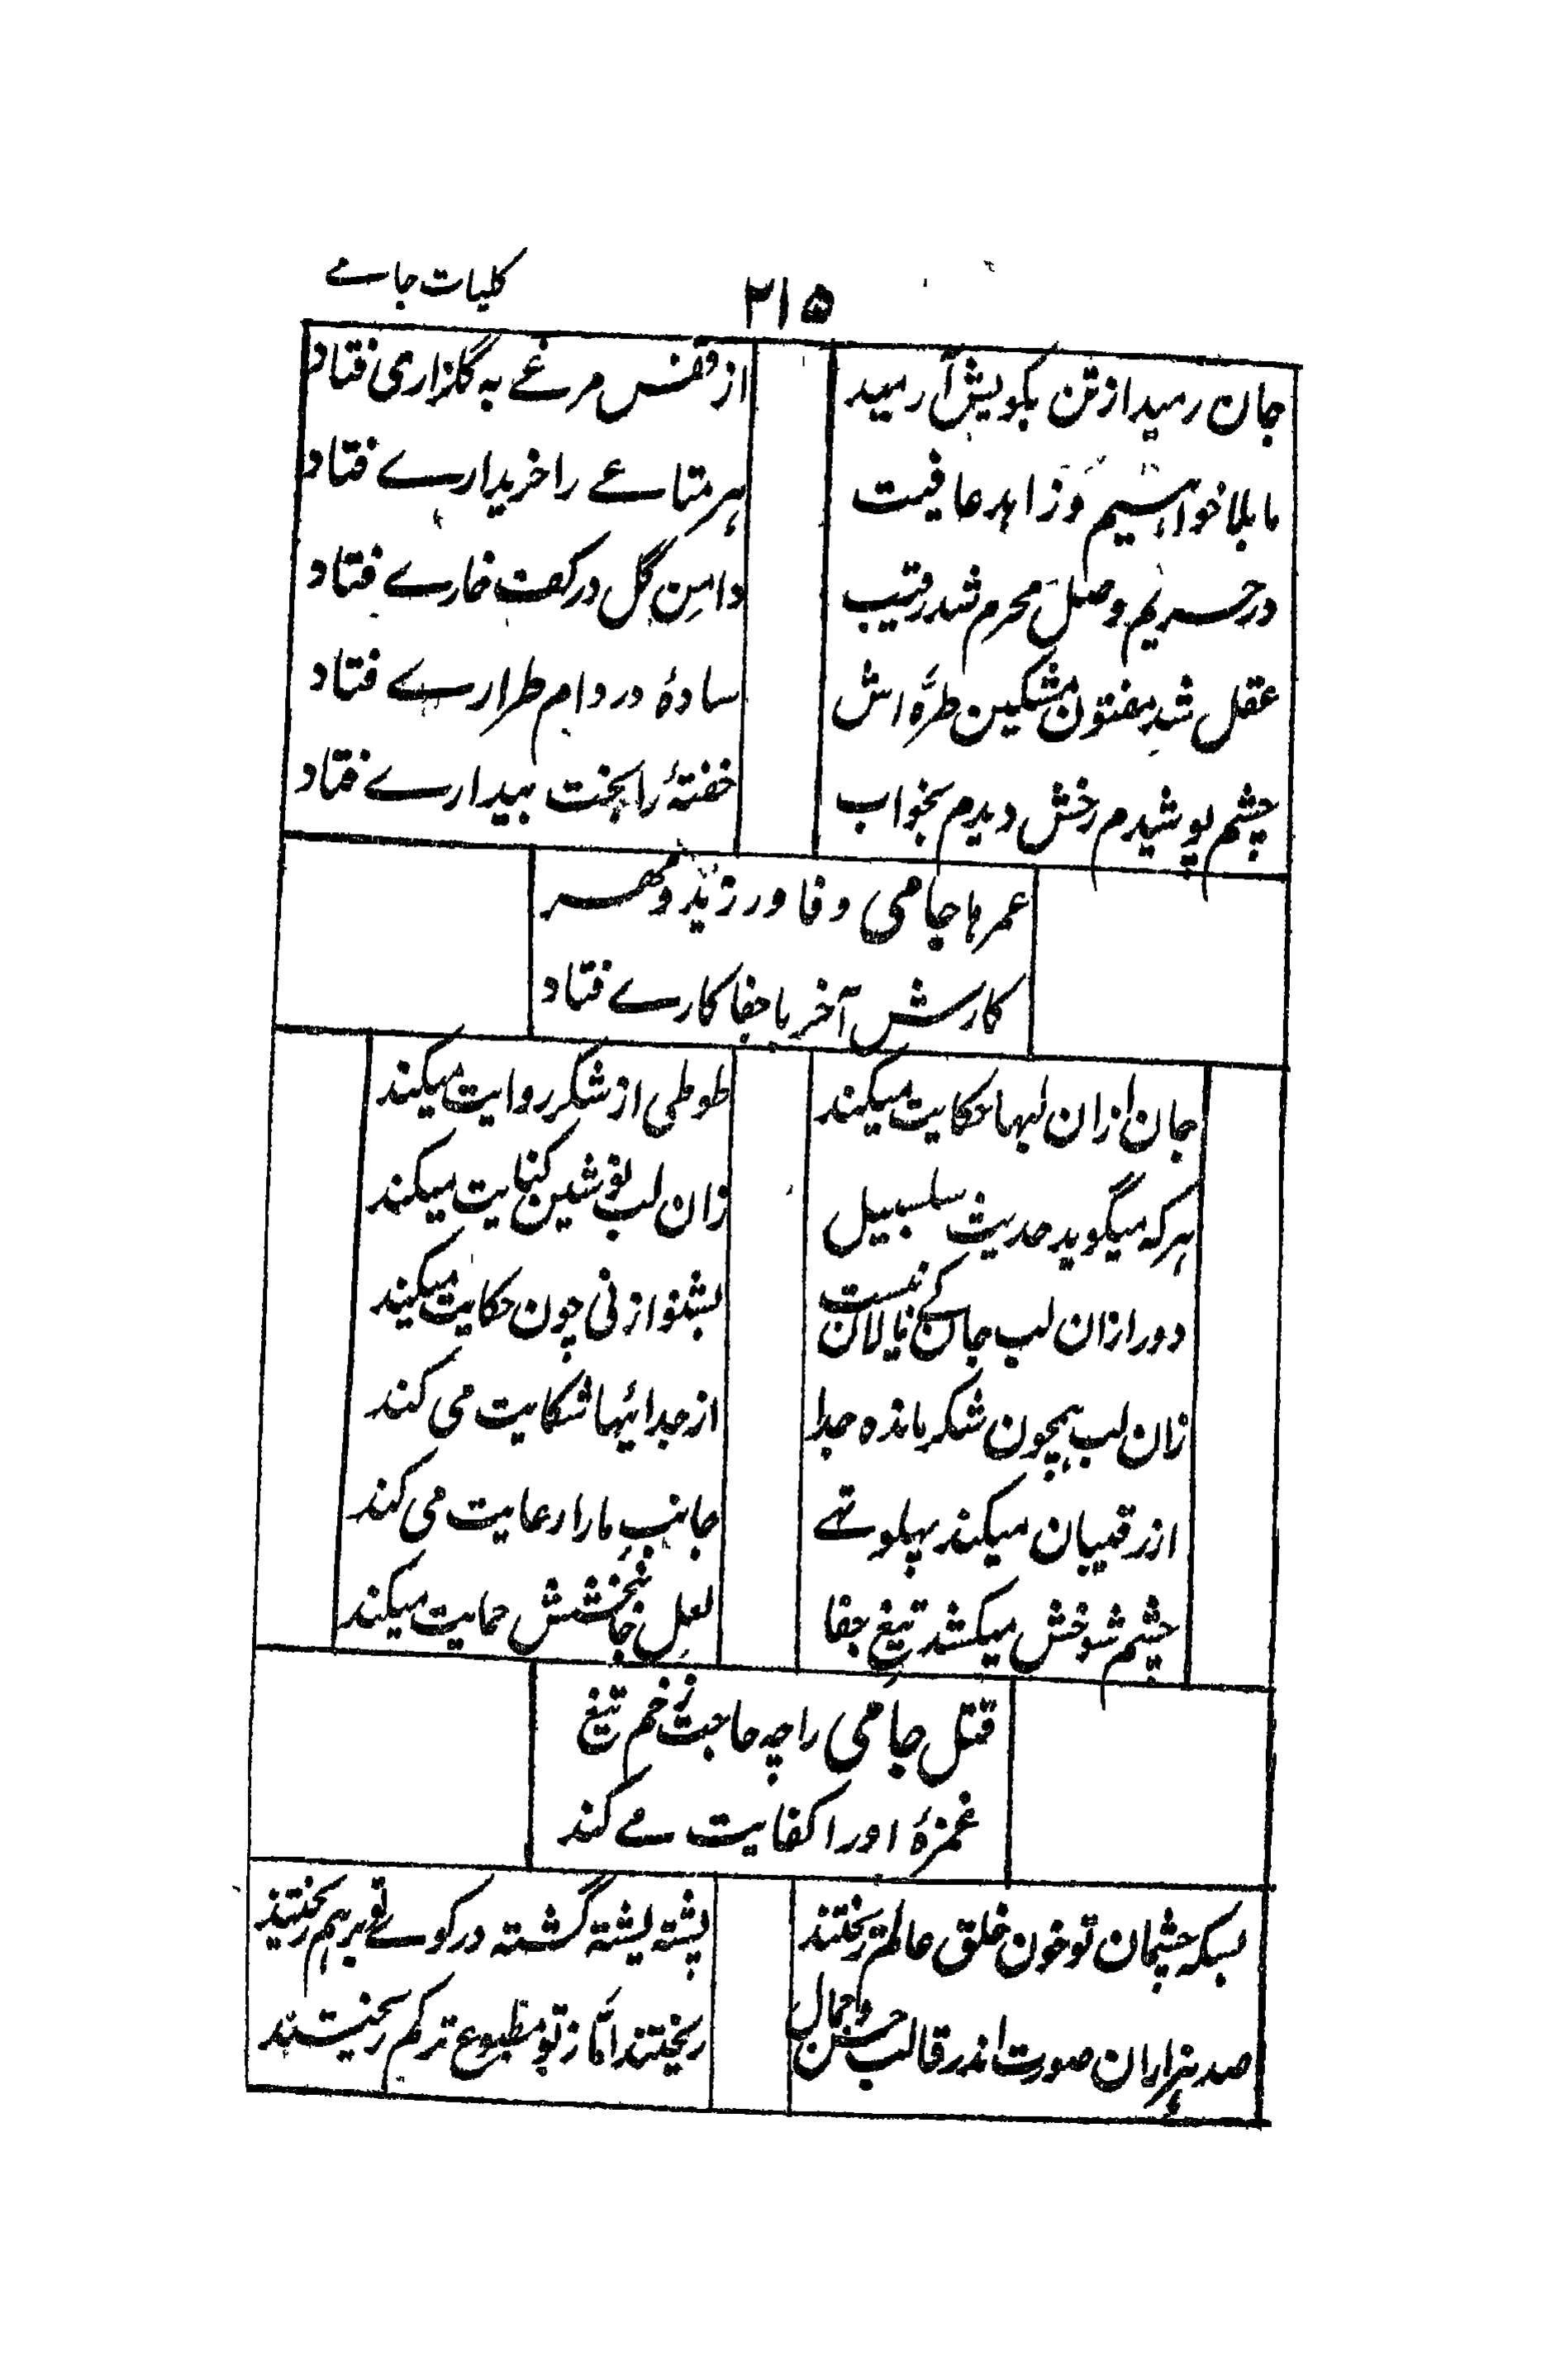 کلیات جامے
۲۱۵
جان رمید از تن بکویش آرمید
از قفس مرغے به گلزاری فتاد
ما بلا خواهیم و زاهد عافیت
هر متاعے را خریدارے فتاد
در حریم وصل محرم شد رقیب
دامن گل در کف خارے فتاد
عقل شد مفتون مشکین طرّه اش
سادهٔ در دام طرارے فتاد
چشم پوشیدم رخش دیدم بخواب
خفتهٔ را بخت بیدارے فتاد
عمرها جامی وفا ورزید و مهر
کارش آخر با جفا کارے فتاد
جان ازان لبها حکایت میکند
طوطی از شکر روایت میکند
هر که میگوید حدیث سلسبیل
زان لب نوشین کنایت میکند
دور ازان لب جان کے نالان نیست
بشنو از نی چون حکایت میکند
زان لب همچون شکر مانده جدا
از جدائیها شکایت می کند
از رقیبان میکند پهلو تهے
جانب ما را رعایت می کند
چشم شوخش میکشد تیغ جفا
لعل جانبخشش حمایت میکند
قتل جامی را چه حاجت زخم تیغ
غمزهٔ او را کفایت مے کند
بسکه چشمان تو خون خلق عالم ریختند
پشته پشته گشته در کوے تو بر هم ریختند
صد هزاران صورت اندر قالب حسن و جمال
ریختند امّا ز تو مطبوع تر کم ریختند